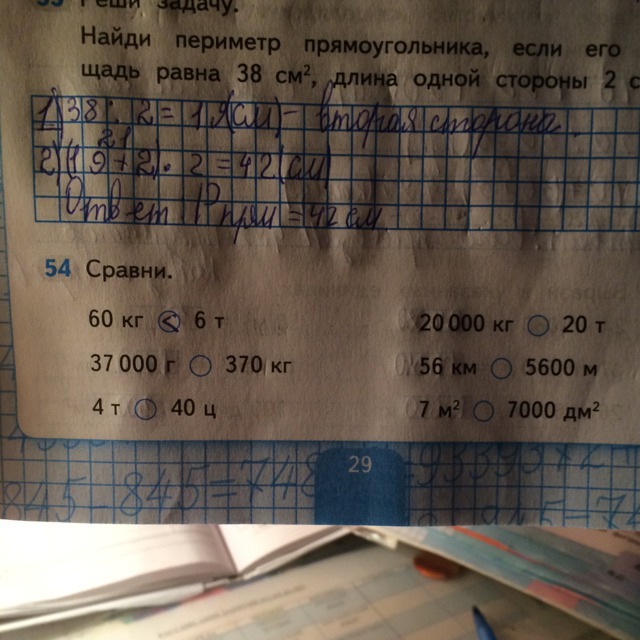 53 Реши задачу.
Найди периметр прямоугольника, если его
щадь равна 38 см², длина одной стороны 2 с
1) 38 : 2 = 19 (см) - вторая сторона.
21
2) (19 + 2) · 2 = 42 (см)
Ответ Pпрям = 42 см
54 Сравни.
60 кг < 6 т 20 000 кг 20 т
37 000 г 370 кг 56 км 5600 м
4 т 40 ц 7 м² 7000 дм²
29
845 - 845 = 748